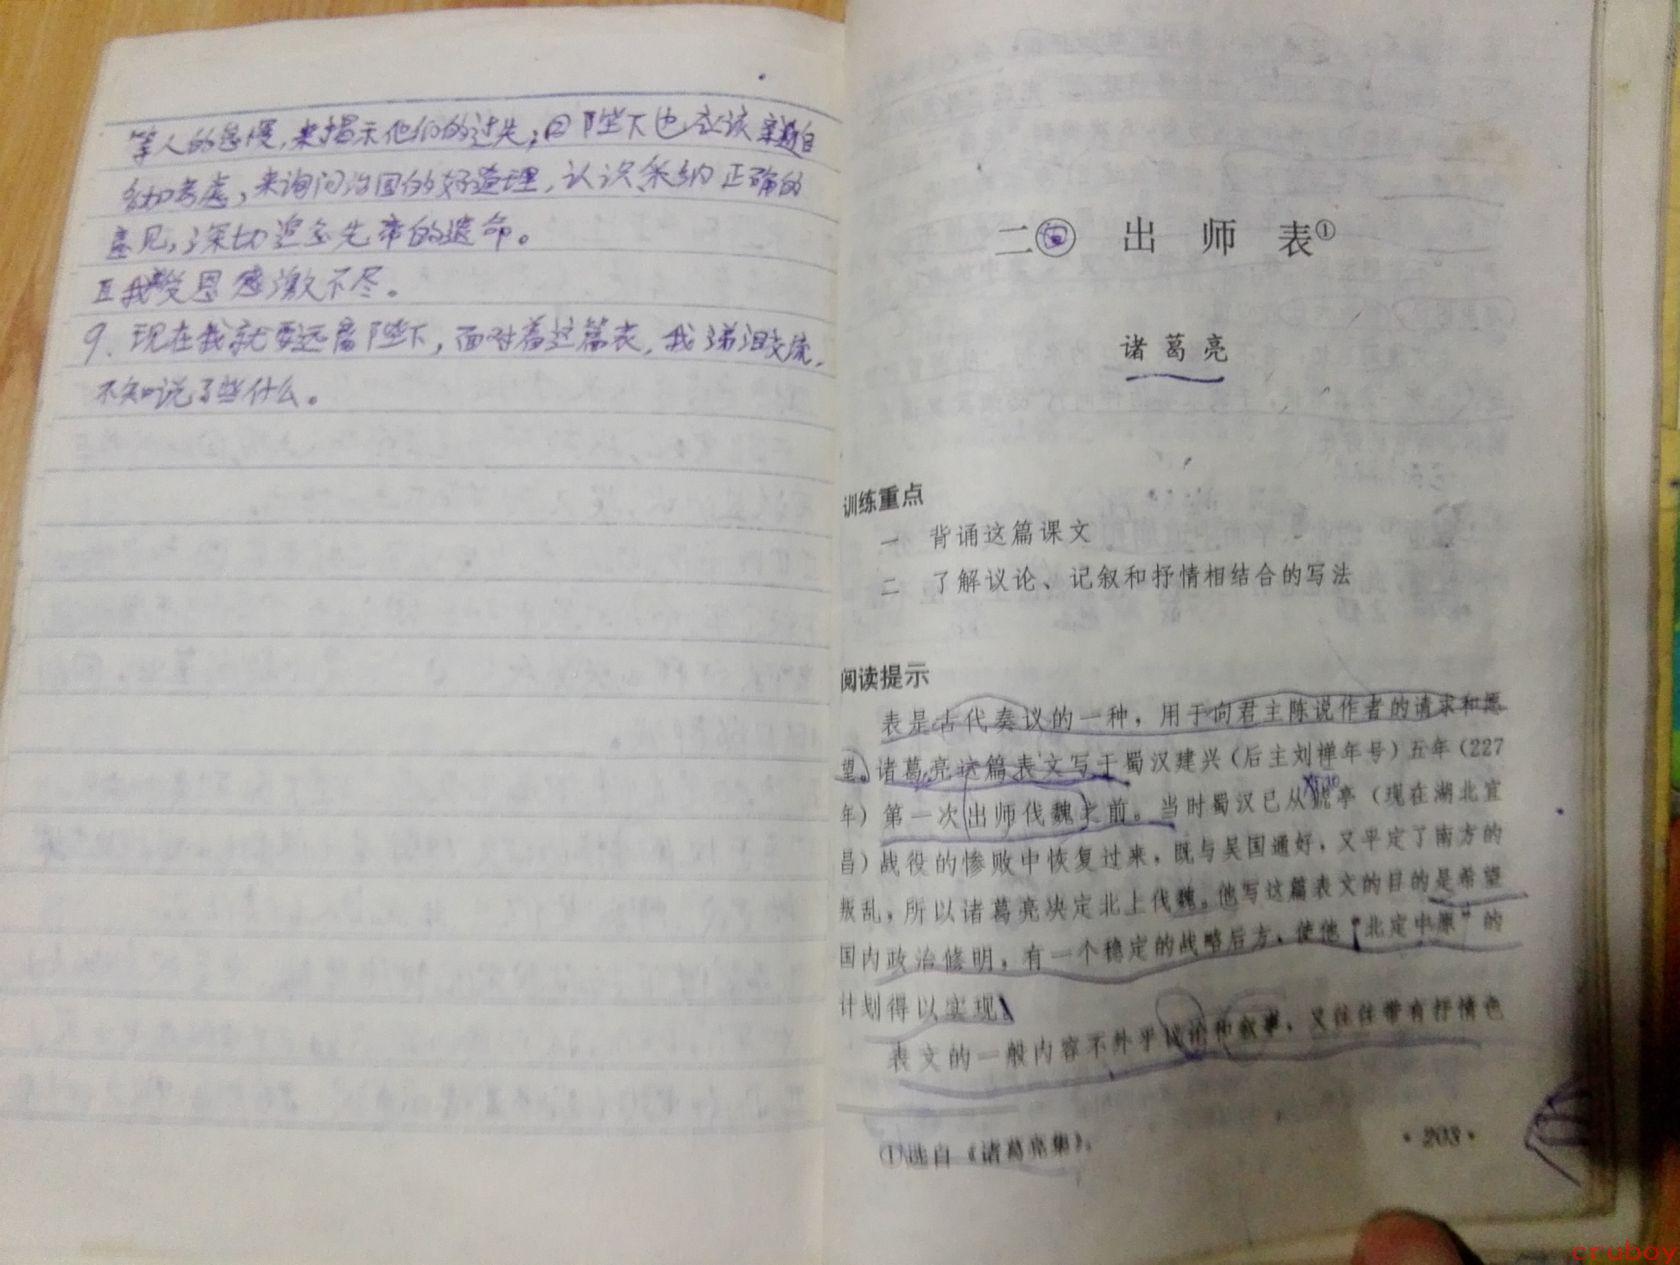 等人的怠慢，来揭示他们的过失；②陛下也应该亲自
考虑，来询问治国的好道理，认识采纳正确的
意见，深切追念先帝的遗命。
我受恩感激不尽。
9. 现在我就要远离陛下，面对着这篇表，我涕泪交流，
不知说了些什么。
二四 出师表①
诸葛亮
训练重点
一 背诵这篇课文
二 了解议论、记叙和抒情相结合的写法
阅读提示
表是古代奏议的一种，用于向君主陈说作者的请求和愿
望。诸葛亮这篇表文写于蜀汉建兴（后主刘禅年号）五年（227
年）第一次出师伐魏之前。当时蜀汉已从猇亭（现在湖北宜
昌）战役的惨败中恢复过来，既与吴国通好，又平定了南方的
叛乱，所以诸葛亮决定北上伐魏。他写这篇表文的目的是希望
国内政治修明，有一个稳定的战略后方，使他“北定中原”的
计划得以实现。
表文的一般内容不外乎议论和叙事，又往往带有抒情色
①选自《诸葛亮集》。
·203·
cruboy